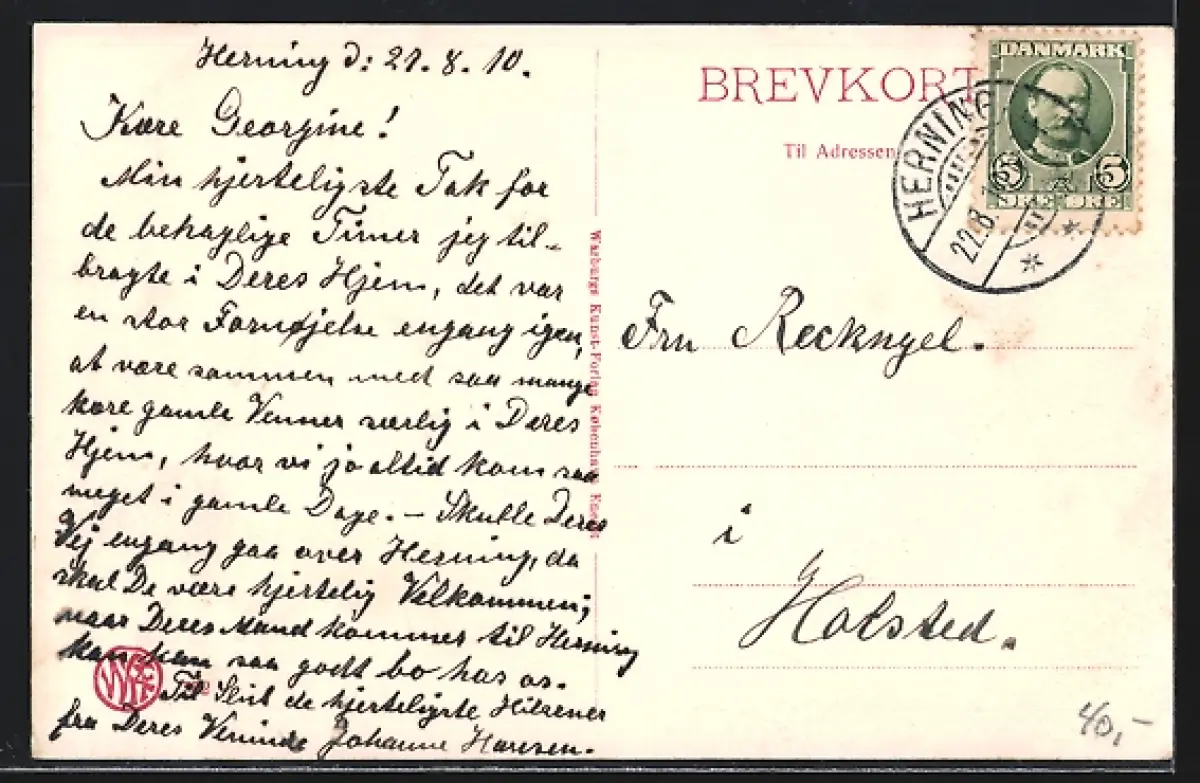 Herning d: 21.8.10.
Kære Georgine!
Min hjerteligste Tak for
de behaglige Timer jeg til-
bragte i Deres Hjem, det var
en stor Fornøjelse engang igen,
at være sammen med saa mange
kære gamle Venner særlig i Deres
Hjem, hvor vi jo altid kom saa
meget i gamle Dage. — Skulle Deres
Vej engang gaa over Herning, da
skal De være hjertelig Velkommen;
naar Deres Mand kommer til Herning
kan saa godt bo hos os.
Til Slut de hjerteligste Hilsener
fra Deres Veninde Johanne
BREVKORT
Til Adressen
DANMARK
5 5
ØRE ØRE
HERNING
22.8.
Warburgs Kunst-Forlag København Eneret
Fru Reckngel.
i
Holsted.
40,-